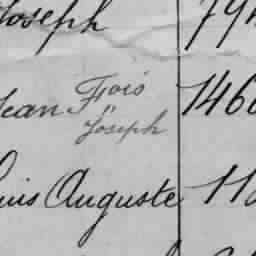 Joseph 794
Jean Frois
" Joseph 1460
Louis Auguste 11